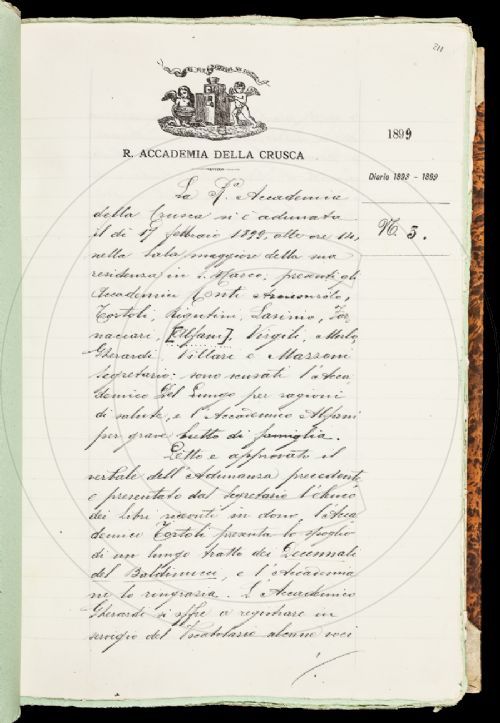 211
R. ACCADEMIA DELLA CRUSCA
1899
Diario 1898 - 1899
N. 3.
La R.a Accademia
della Crusca si è adunata
il dì 17 febbraio 1899, alle ore 14,
nella Sala maggiore della sua
residenza in S. Marco; presenti gli
Accademici Conti
Tortoli, Rigutini, Lasinio, For
naciari, [Alfani], Virgili, Merlo,
Gherardi, Villari e Mazzoni
Segretario: sono scusati l'Acca
demico Del Lungo per ragioni
di salute, e l'Accademico Alfani
per grave lutto di famiglia.
Letto e approvato il
verbale dell'Adunanza precedente,
e presentato dal Segretario l'elenco
dei libri ricevuti in dono, l'Acca
demico Tortoli presenta lo spoglio
di un lungo tratto dei Decennali
del Baldinucci, e l'Accademia
ne lo ringrazia. L'Accademico
Gherardi si offre a registrare in
servigio del Vocabolario alcune voci